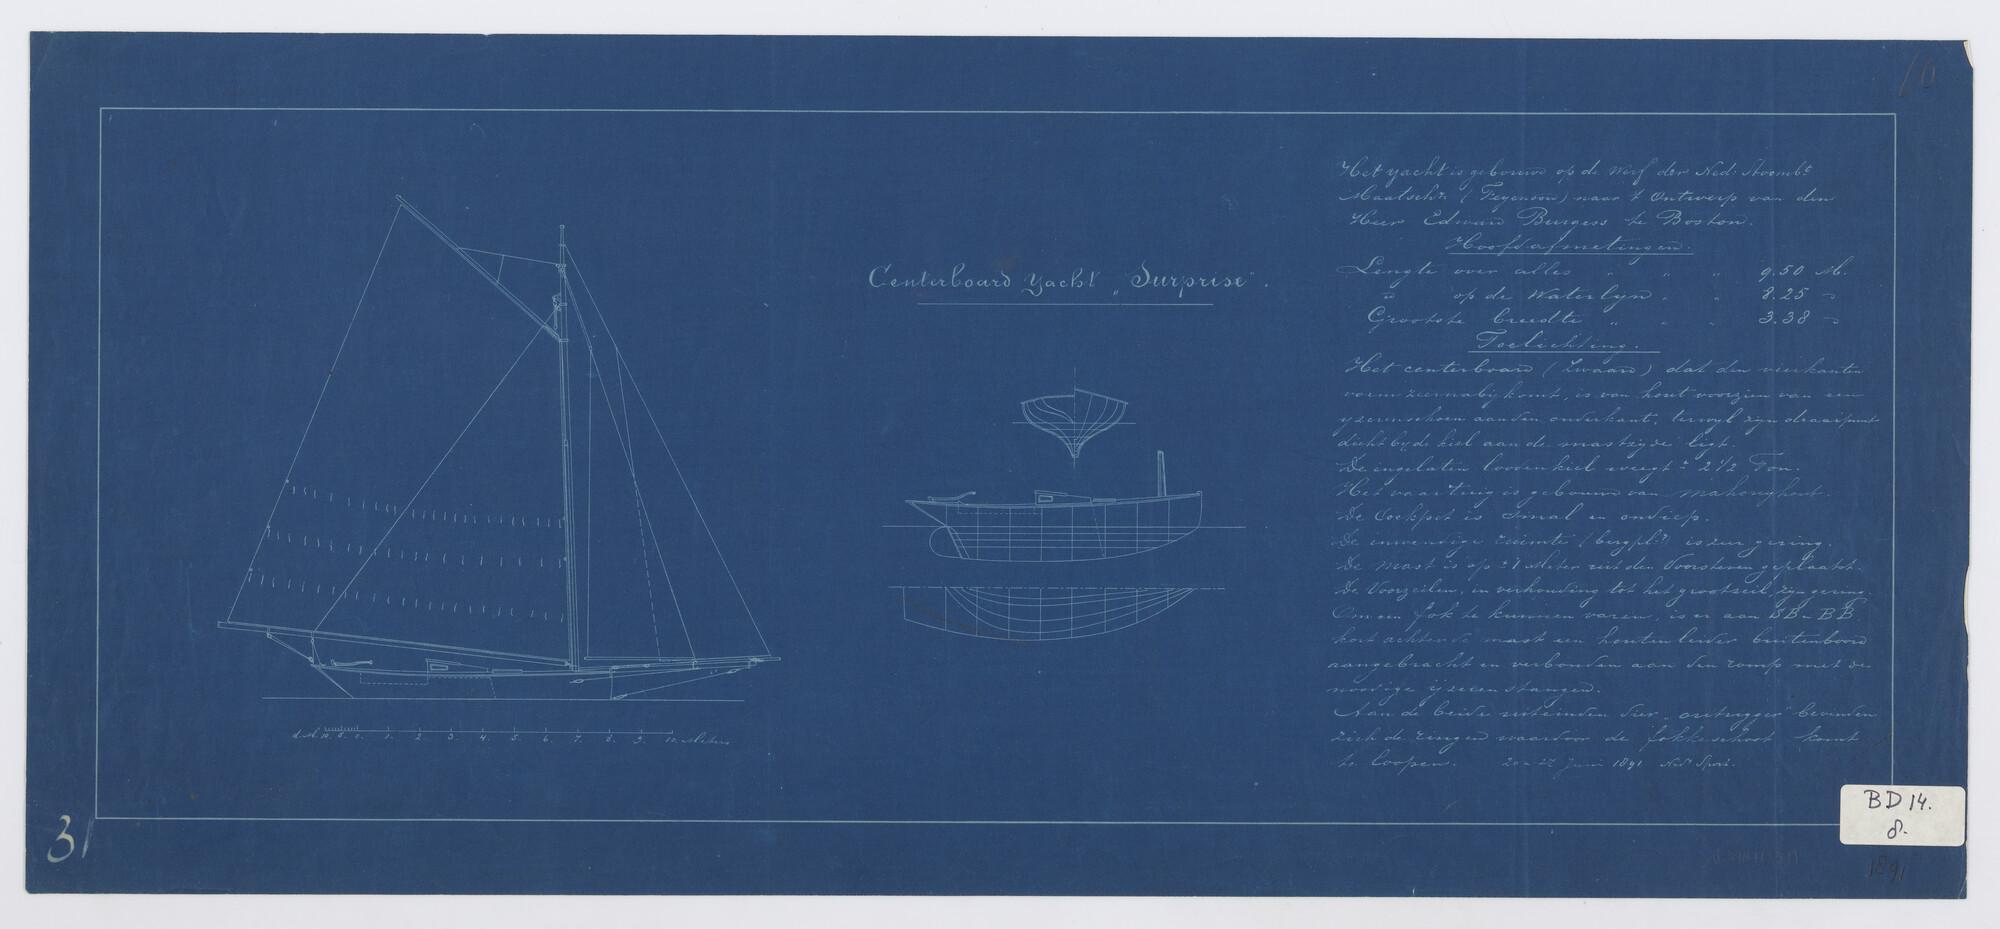 10
Centerboard Yacht „Surprise".
Het yacht is gebouwd op de Werf der Ned: Stoombt
Maatschij (Feyenoord) naar 't Ontwerp van den
Heer Edward Burgess te Boston.
Hoofdafmetingen.
Lengte over alles " " " 9.50 M.
" op de Waterlyn " " 8.25 "
Grootste breedte " " " 3.38 "
Toelichting.
Het centerboard (zwaard) dat den vierkanten
vorm zeer nabij komt, is van hout voorzien van een
yzeren schoen aan den onderkant, terwyl zyn draaipunt
dicht by de kiel aan de mastzyde ligt.
De ingelaten looden kiel weegt ± 2 1/2 Ton.
Het vaartuig is gebouwd van mahonyhout.
De Cockpit is smal en ondiep.
De inwendige ruimte (bergpl:) is zeer gering.
De mast is op ± 1 Meter uit den Voorsteven geplaatst.
De Voorzeilen, in verhouding tot het grootzeil, zyn gering.
Om een fok te kunnen varen, is er aan SB. BB
kort achter de mast een houten buitenboord
aangebracht en verbonden aan den romp met de
noodige ijzeren stangen.
Aan de beide uiteinden dier „outrigger" bevinden
zich de ringen waardoor de fokkeschoot komt
te loopen. 20 27 Juni 1891 Ned. Sport.
d.M. 10. 5. 0. 1. 2. 3. 4. 5. 6. 7. 8. 9. 10. Meters
31
BD 14.
8.
1891